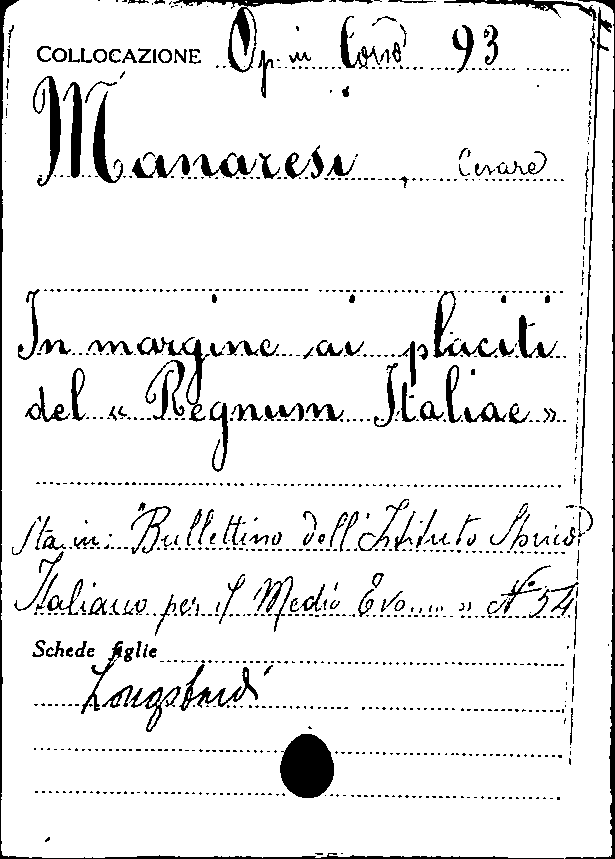 COLLOCAZIONE Op. in Cons 93
Manaresi, Cesare
In margine ai placiti
del « Regnum Italiae »
Sta in: "Bullettino dell'Istituto Storico
Italiano per il Medio Evo.... » N° 54
Schede figlie
Longobardi